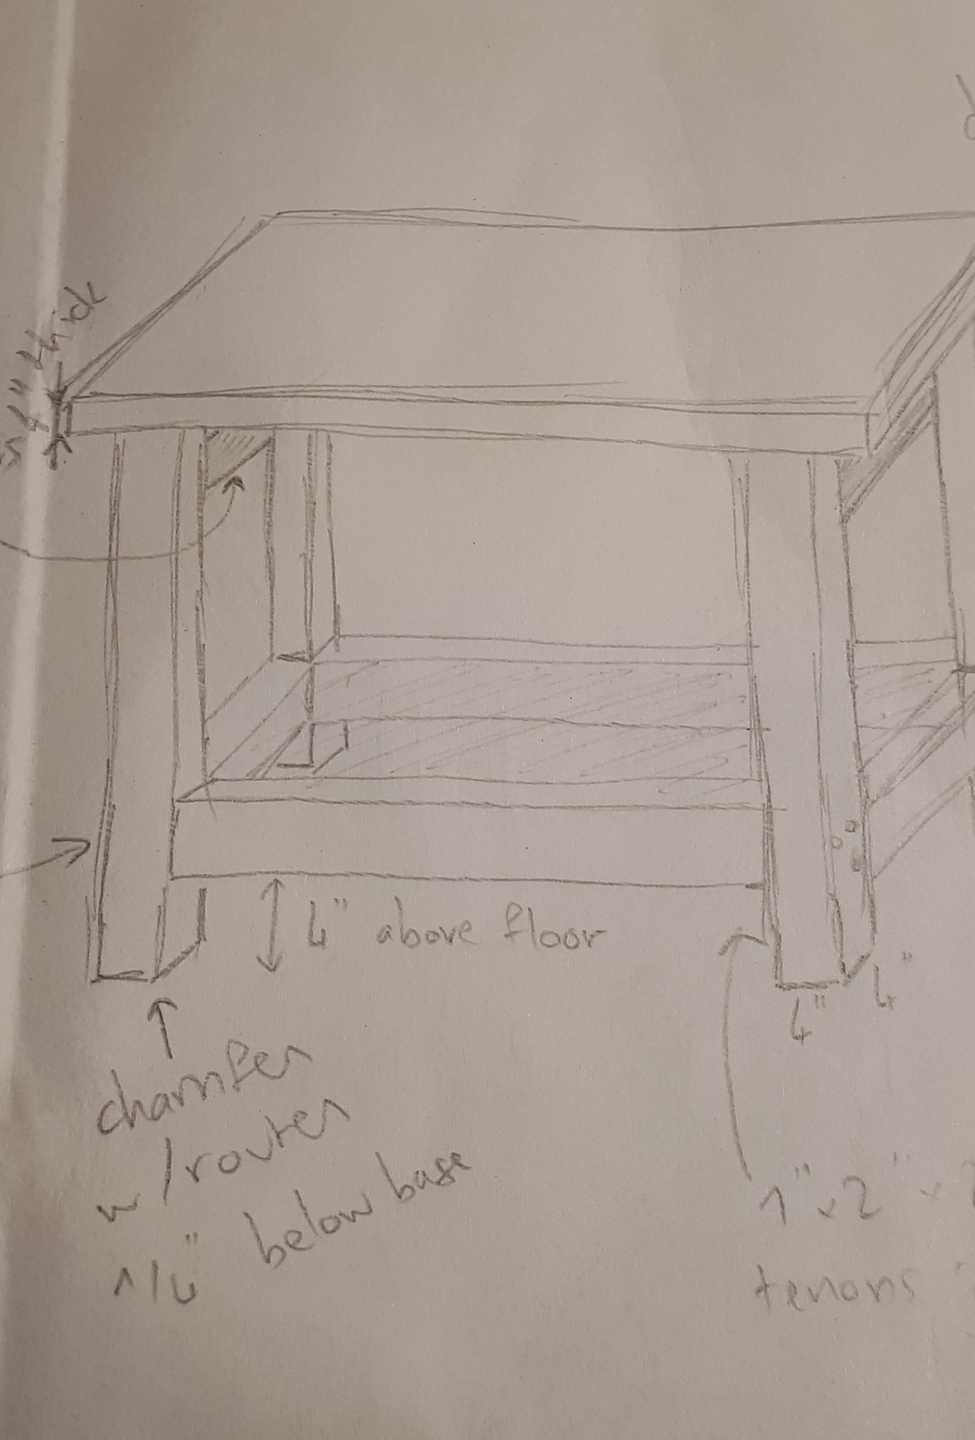 3/4" thick
4" above floor
4"
4"
chamfer
w/router
1/4" below base
1" x 2" x
tenons